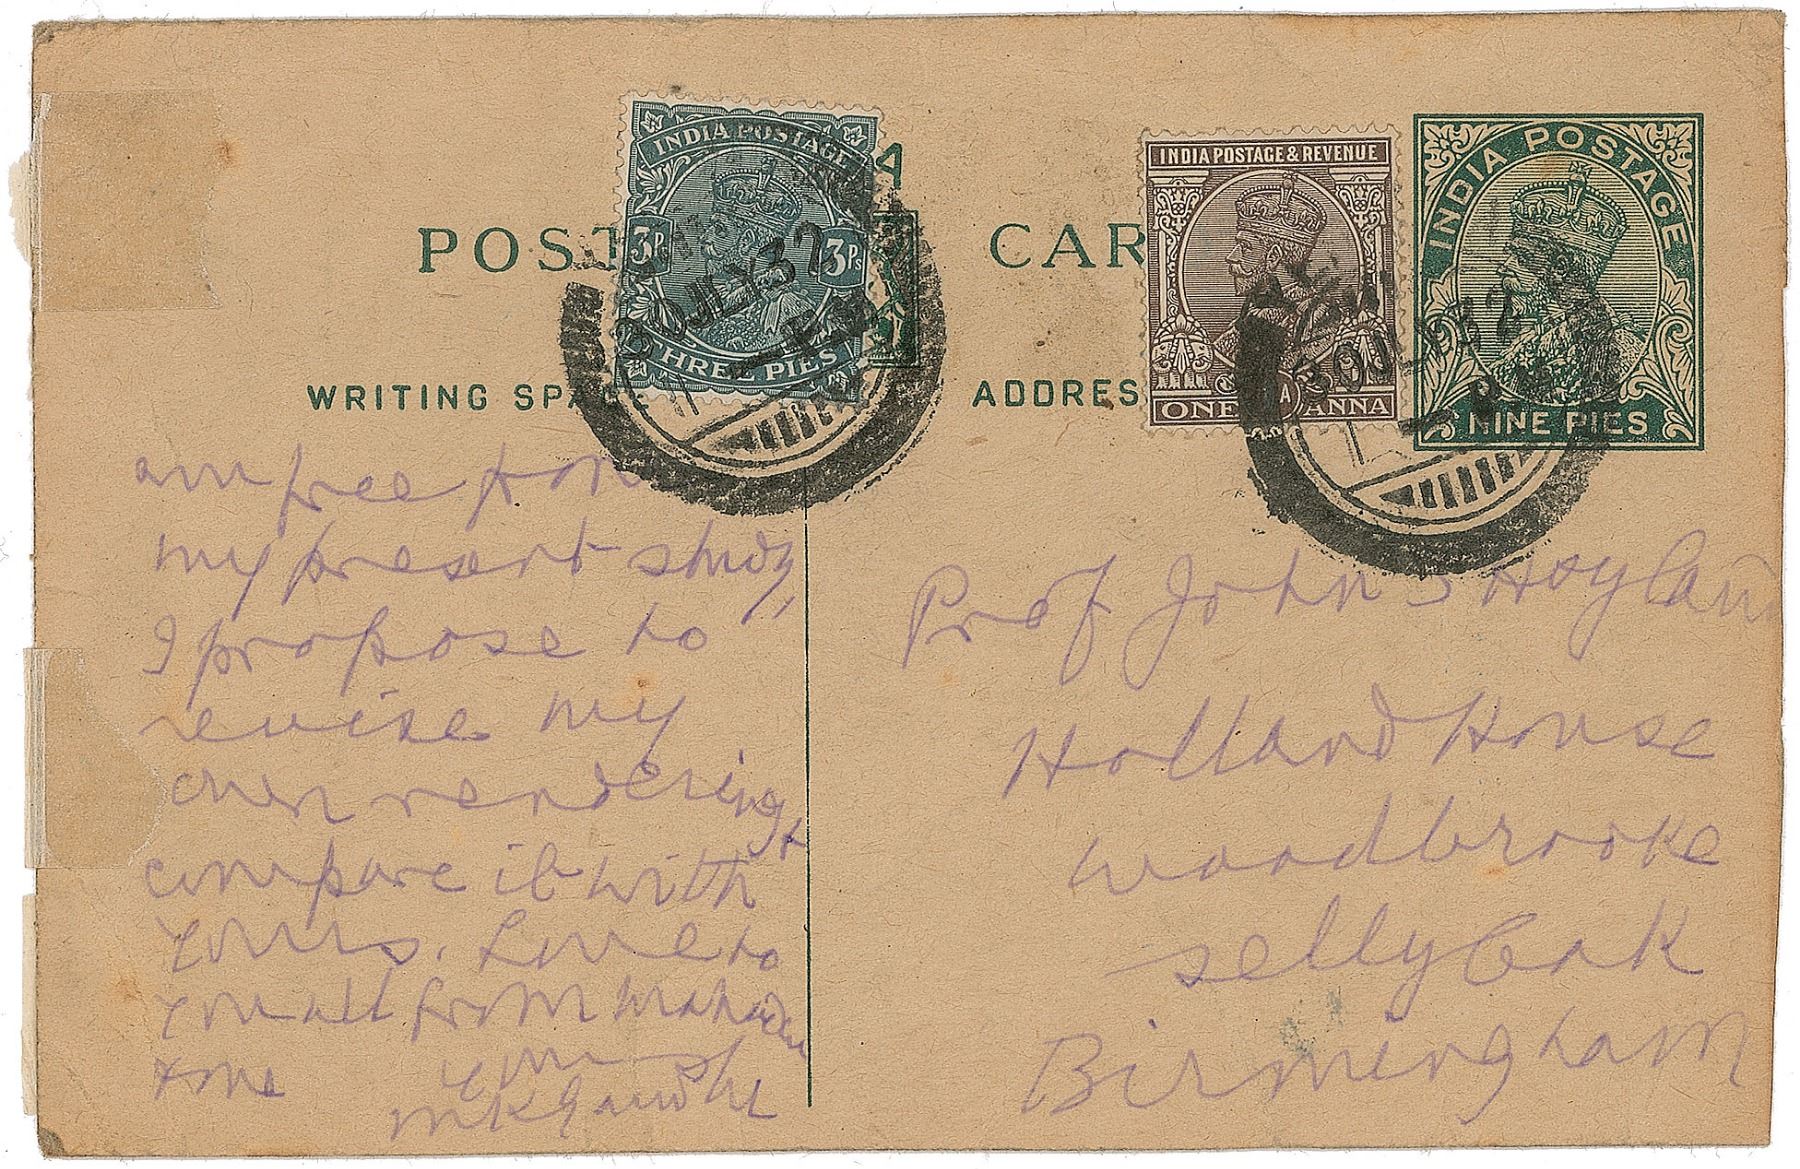 INDIA POSTAGE
3Ps 3Ps
THREE PIES
A
INDIA POSTAGE & REVENUE
ONE ANNA
INDIA POSTAGE
NINE PIES
POST CAR
WRITING SPA
ADDRES
30 JLY 37
30 JLY 37
am free from
my present study,
I propose to
revise my
own rendering &
compare it with
yours. Love to
you all from Mahadev
& me Yours
MKGandhi
Prof John S Hoyland
Holland House
Woodbrooke
Selly Oak
Birmingham